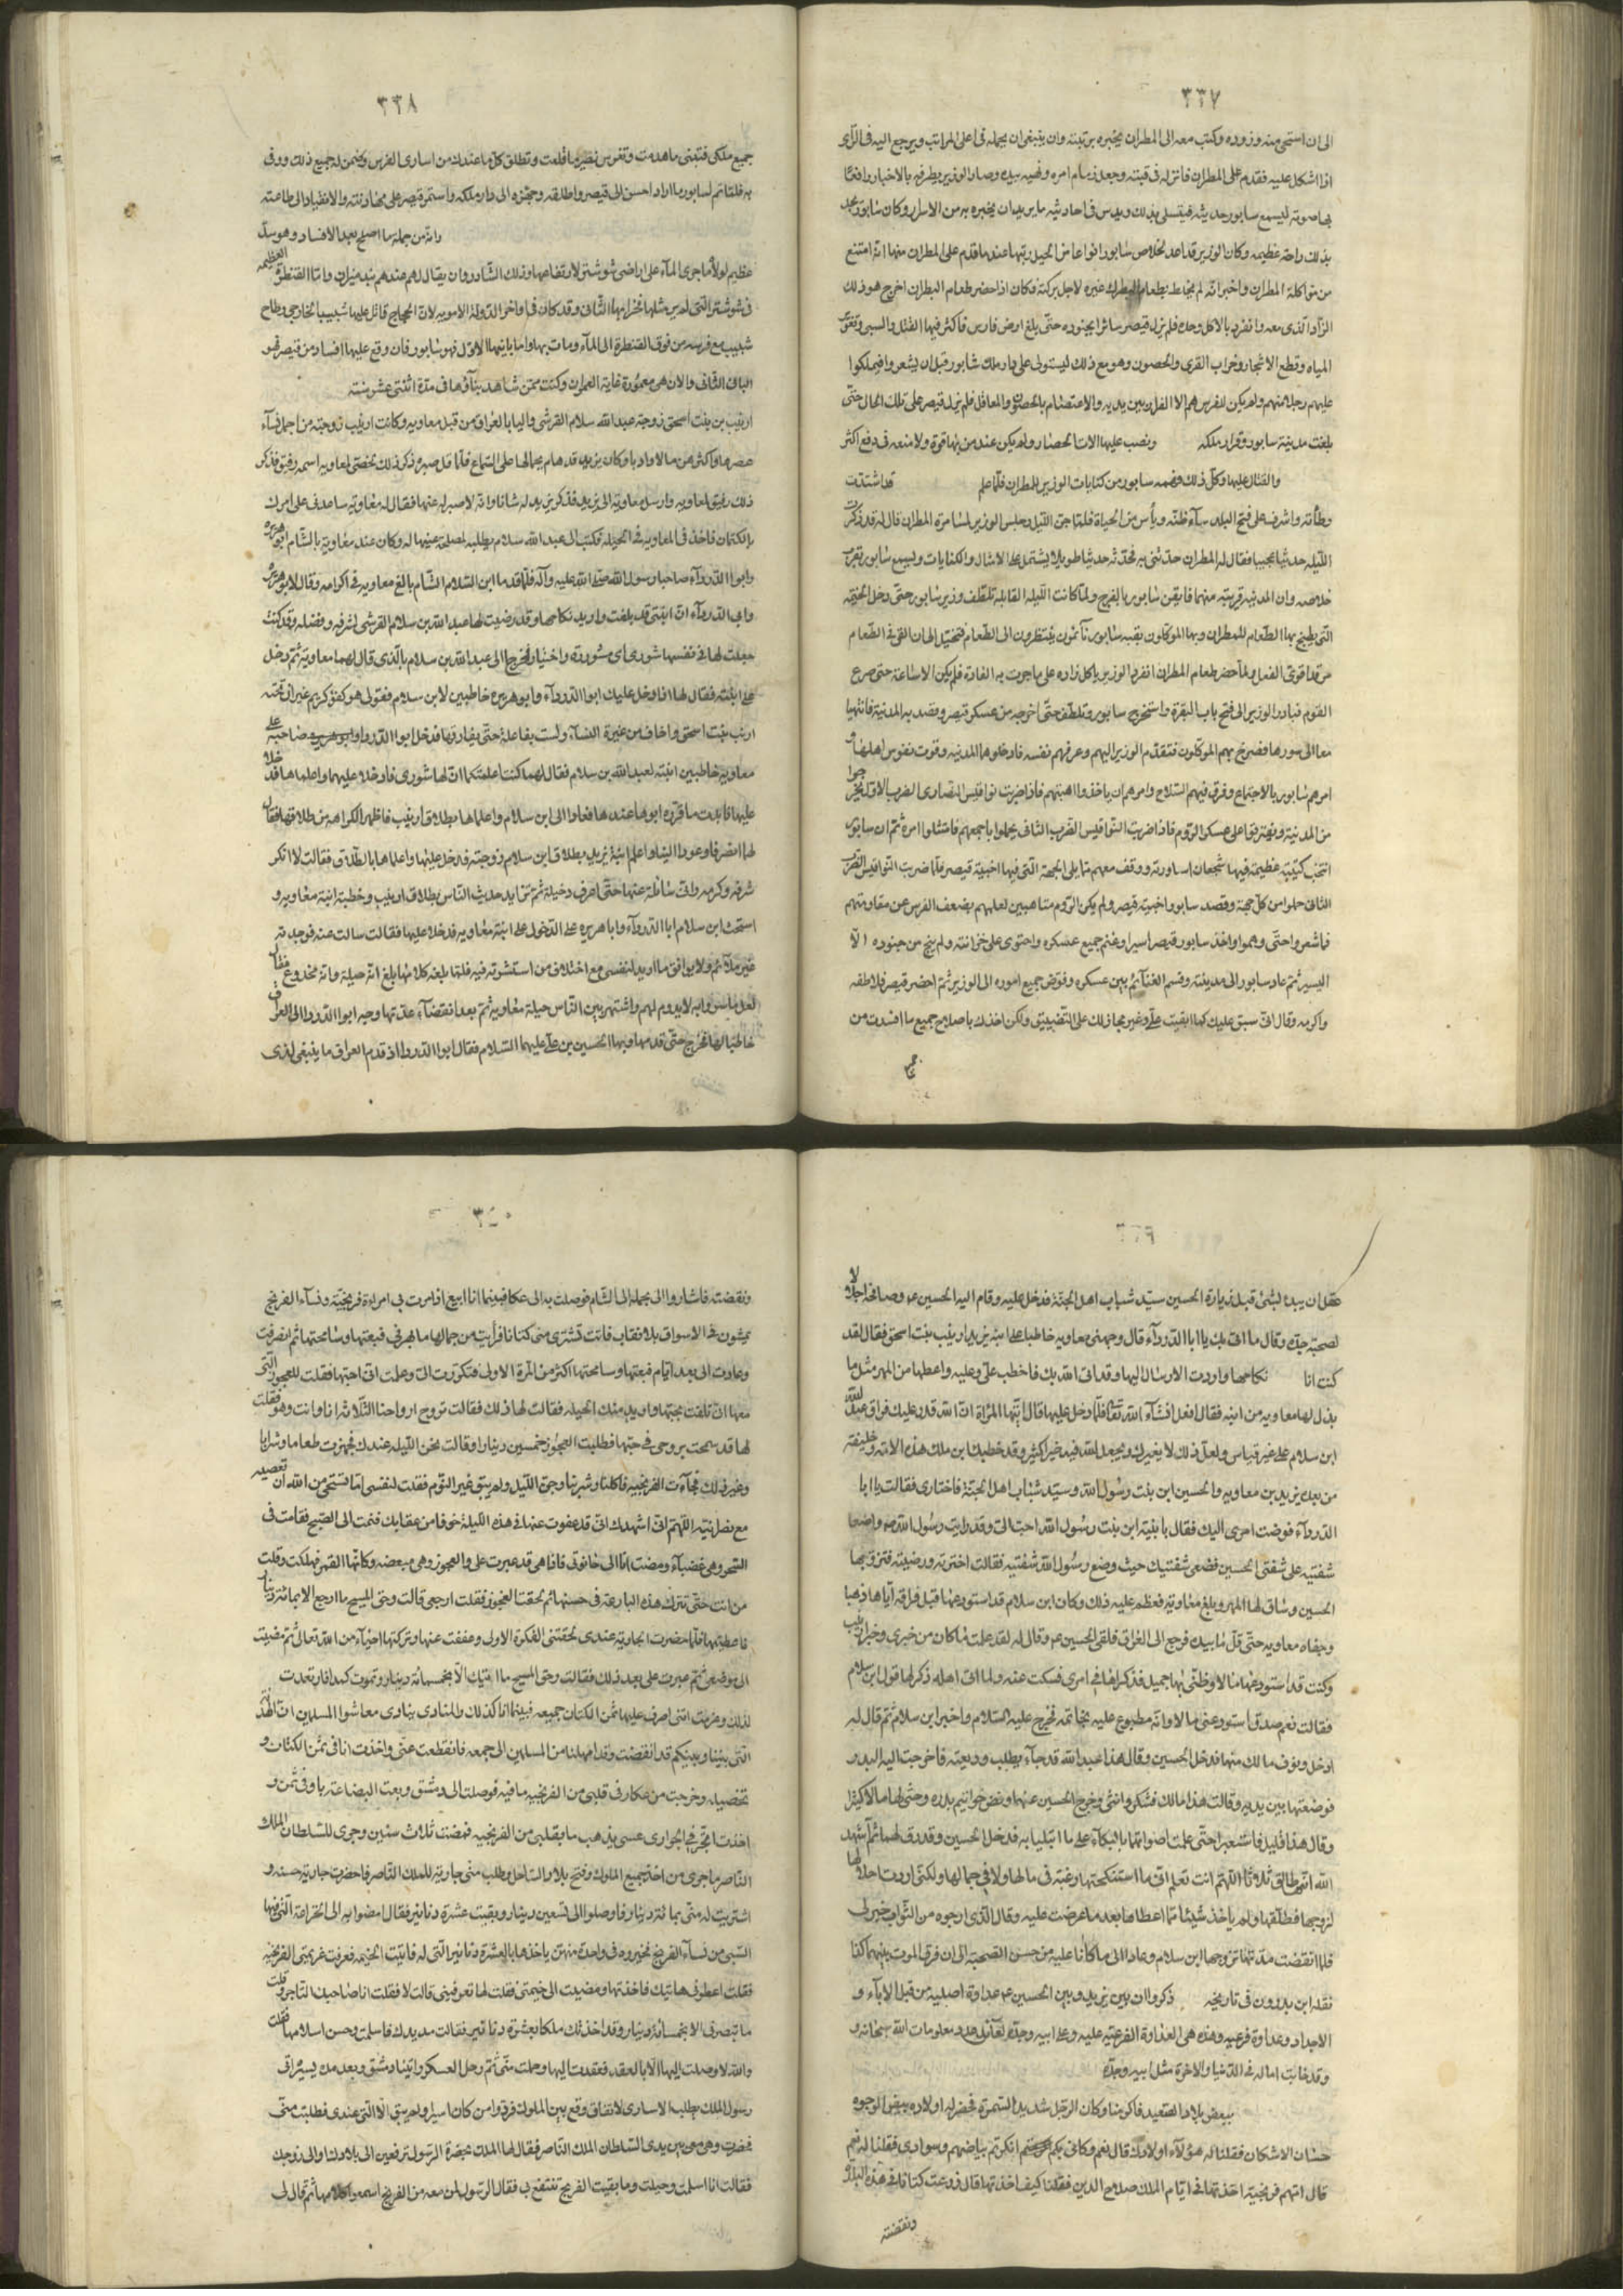 ٣٣٧
الى ان استحى منه وزوده وكتب معه الى المطران يخبره برتبته وان ينبغى ان يجعله فى اعلى المراتب ويرجع اليه فى الرأى
اذا اشكل عليه فقدم على المطران فانزله فى قبته وجعل زمام امره ونهيه بيده وصار الوزير يطرفه بالاخبار رافعا
بها صوته ليسمع سابور حديثه فيتسلى بذلك ويدس فى احاديثه ما يريد ان يخبره به من الاسرار وكان سابور يجد
بذلك راحة عظيمه وكان الوزير قد اعد لخلاص سابور انواعا من الحيل رتبها عند ما قدم على المطران منها انه امتنع
من مواكلة المطران واخبر انه لم يخلط بطعام البطرك غيره لاجل بركته فكان اذا حضر طعام المطران اخرج هو ذلك
الزاد الذى معه وانفرد بالاكل وحده فلم يزل قيصر سائرا بجنوده حتى بلغ ارض فارس فاكثر فيها القتل والسبى وتغوير
المياه وقطع الاشجار وخراب القرى والحصون وهو مع ذلك ليستولى على دار ملك شابور قبل ان يشعروا فيملكوا
عليهم رجلا منهم ولم يكن للفرس هم الا الفرار من بين يديه والاعتصام بالحصون والمعاقل فلم يزل قيصر على تلك الحال حتى
بلغت مدينة سابور وقرار ملكه ونصب عليها الات الحصار ولم يكن عند من بها قوة ولا منعه فى دفع اكثر
والقتال عليها وكل ذلك يفهمه سابور من كنايات الوزير للمطران فلما علم قد اشتدت
وطأته واشرف على فتح البلد ساء ظنه ويأس من الحياة فلما جن الليل وجلس الوزير لمسامرة المطران قال له قد ذكرت
الليله حديثا عجيبا فقال له المطران حدثنى به فحدثه حديثا طويلا يشتمل على الامثال والكنايات ويسمع سابور تقرب
خلاصه وان المدينه قريبة منهما فايقن شابور بالفرج ولما كانت الليله القابله تلطف وزير سابور حتى دخل الخيمه
التى يطبخ بها الطعام للمطران وبها الموكلون بقبه سابور نائمون ينتظرون الى الطعام فتحيل الى ان القى فى الطعام
مرقدا قوى الفعل ولما حضر طعام المطران انفرد الوزير ياكل زاده على ما جرت به العادة فلم يكن الا ساعة حتى صرع
القوم فبادر الوزير الى فتح باب البقرة واستخرج سابور وتلطف حتى اخرجه من عسكر قيصر وقصد به المدينة فانتهيا
معا الى سورها فصرخ بهم الموكلون فتقدم الوزير اليهم وعرفهم نفسه فادخلوهما المدينه وقوت نفوس اهلها و
امرهم شابور بالاجتماع وفرق فيهم السلاح وامرهم ان ياخذوا اهبتهم فاذا ضربت نواقيس النصارى الضرب الاول يخرجوا
من المدينة ويفترقوا على عسكر الروم فاذا ضربت النواقيس الضرب الثانى يحملوا باجمعهم فامتثلوا امره ثم ان سابور
انتخب كتيبة عظيمة فيها شجعان اساورته ووقف معهم مما يلى الجهة التى فيها اخبية قيصر فلما ضربت النواقيس الضرب
الثانى حملوا من كل جهة وقصد سابور اخبية قيصر ولم يكن الروم متاهبين لعلمهم بضعف الفرس عن مقاومتهم
فما شعروا حتى دهموا واخذ سابور قيصر اسيرا وغنم جميع عسكره واحتوى على خزانته ولم ينج من جنوده الا
اليسير ثم عاد سابور الى مدينته وقسم الغنائم بين عسكره وفوض جميع اموره الى الوزير ثم احضر قيصر فلاطفه
واكرمه وقال انى سبق عليك كما ابقيت على وغير مجازيك على التضييق ولكن اخذك باصلاح جميع ما افسدت من
٣٣٨
جميع ملكى فتبنى ما هدمت وتغرس نظير ما قلعت وتطلق كل ما عندك من اسارى الفرس وضمن له جميع ذلك ووفى
به فلما تم لسابور ما اراد احسن الى قيصر واطلقه وجهزه الى دار ملكه واستمر قيصر على مهادنته والانقياد الى طاعته
وانه من جملة ما اصلح بعد الافساد وهو سد
عظيم لولا ما جرى الماء على اراضى شوشتر لارتفاعها وذلك الشادروان يقال له عندهم بند ميزان واما القنطرة العظيمه
فى شوشتر التى لم ير مثلها
شبيب مع فرسه من فوق القنطرة الى الماء ومات بها واما بانيها الاول فهو سابور فان وقع عليها افساد من قيصر فهو
البانى الثانى والان هى معمورة غاية العمران وكنت ممن شاهد بناءها فى مدة اثنتى عشر سنة
ارينب بنت اسحق زوجة عبد الله سلام القرشى واليا بالعراق من قبل معاويه وكانت ارينب زوجته من اجمل نساء
عصرها واكثرهن مالا وادبا وكان يزيد قد هام بجمالها على السماع فلما قل صبره ذكر ذلك لخصى لمعاويه اسمه رفيق فذكر
ذلك رفيق لمعاويه وارسل معاويه الى يزيد فذكر يزيد له شانها وانه لا صبر له عنها فقال له معاويه ساعدنى على امرك
بالكتمان فاخذ فى المعاويه فى الحيله فكتب الى عبد الله سلام يطلبه لمصلحة عينها له وكان عند معاوية بالشام ابو هريره
وابو الدرداء صاحبا رسول الله صلى الله عليه وآله فلما قدم ابن السلام الشام بالغ معاويه فى اكرامه وقال لابو هريره
وابى الدرداء ان ابنتى قد بلغت واريد نكاحها وقد رضيت لها عبد الله بن سلام القرشى لشرفه وفضله وقد كنت
جعلت لها فى نفسها شورى اى مشوره واختيار فخرجا الى عبد الله بن سلام بالذى قال لهما معاوية ثم دخل
على ابنته فقال لها اذا دخل عليك ابو الدرداء وابو هريره خاطبين لابن سلام فقولى هو كفو كريم غير ان تحته
ارينب بنت اسحق واخاف من غيرة النساء ولست بفاعلة حتى يفارقها فدخل ابو الدرداء وابو هريره صاحبه على
معاويه خاطبين ابنته لعبد الله بن سلام فقال لهما كنت اعلمتكما ان لها شورى فادخلا عليها واعلماها فدخلا
عليها فابدت ما قرره ابوها عندها فعادا الى ابن سلام واعلماه بطلاق ارينب فاظهر الكراهه من طلاقها فقال
لهما انصرفا وعودا الينا واعلم ابنه يزيد بطلاق ابن سلام زوجته فدخل عليها واعلماها بالطلاق فقالت لا انكر
شرفه وكرمه وانى سائلة عنه حتى اعرف دخيلة ثم تزايد حديث الناس بطلاق ارينب وخطبة ابنة معاويه و
استحث ابن سلام ابا الدرداء وابا هريره على الدخول على ابنة معاويه فدخلا عليها فقالت سالت عنه فوجدته
غير ملائم ولا يوافق ما اريد لنفسى مع اختلاف من استشرته فيه فلما بلغه كلامها بلغ انه حيلة وانه مخدوع فقال
لعل ما سروا به لا يدوم لهم واشتهر بين الناس حيلة معاويه ثم بعد انقضاء عدتها وجه ابو الدرداء الى العراق
خاطبا لها فخرج حتى قدمها وبها الحسين بن على عليهما السلام فقال ابو الدرداء اذ قدم العراق ما ينبغى لذى
٣٣٩
عقل ان يبدء لشئ قبل زيارة الحسين سيد شباب اهل الجنة فدخل عليه وقام اليه الحسين ع وصافحه اجلالا
لصحبته جده وقال ما اتى بك يا ابا الدرداء قال وجهنى معاويه خاطبا على ابنه يزيد ارينب بنت اسحق فقال لقد
كنت انا نكاحها واردت الارسال اليها وقد اتى الله بك فاخطب على وعليه واعطها من المهر مثل ما
بذل لها معاويه من ابنه فقال افعل انشاء الله تعالى فلما دخل عليها قال ايتها المراة ان الله قدر عليك فراق عبد الله
ابن سلام على غير قياس ولعل ذلك لا يغيرك ويجعل الله فيه خيرا كثيرا وقد خطبك ابن ملك هذه الامة وخليفته
من بعده يزيد بن معاويه والحسين ابن بنت رسول الله وسيد شباب اهل الجنة فاختارى فقالت يا ابا
الدرداء فوضت امرى اليك فقال يا بنية ابن بنت رسول الله احب الى وقد رايت رسول الله ص واضعا
شفتيه على شفتى الحسين فضعى شفتيك حيث وضع رسول الله شفتيه فقالت اخترته ورضيته فتزوجها
الحسين وساق لها المهر وبلغ معاوية فعظم عليه ذلك وكان ابن سلام قد استودعها قبل فراقه اياها ذهبا
وجفاه معاويه حتى قل ما بيده فرجع الى العراق فلقى الحسين ع وقال له لقد علمت ما كان من خبرى وخبر ارينب
وكنت قد استودعتها مالا وظنى بها جميل فذكرها فى امرى فسكت عنه ولما اتى اهله ذكر لها قول ابن سلام
فقالت نعم صدق استودعنى مالا وانه مطبوع عليه بخاتمه فخرج عليه السلام واخبر ابن سلام ثم قال له
ادخل وتوف مالك منها فدخل الحسين وقال هذا عبد الله قد جاء يطلب وديعته فاخرجت اليه البدر
فوضعتها بين يديه وقالت هذا مالك فشكر واثنى وخرج الحسين عنهما وفض خواتيم بدره وحثى لها مالا كثيرا
وقال هذا قليل فاستعبرا حتى علت اصواتهما بالبكاء على ما ابتليا به فدخل الحسين وقد رق لهما ثم اشهد
الله انها طالق ثلاثا اللهم انت تعلم انى ما استنكحتها رغبة فى مالها ولا فى جمالها ولكنى اردت احلالها
لزوجها فطلقها ولم ياخذ شيئا مما اعطاها بعد ما عرضت عليه وقال الذى ارجوه من الثواب خير لى
فلما انقضت مدتها تزوجها ابن سلام وعادا الى ما كانا عليه من حسن الصحبة الى ان فرق الموت بينهما كذا
نقله ابن بدرون فى تاريخه ذكروا ان بين يزيد وبين الحسين ع عداوة اصليه من قبل الاباء و
الاجداد وعداوة فرعيه وهذه هى العداوة الفرعيه عليه وعلى ابيه وجده لعائن بعدد معلومات الله سبحانه و
وقد خابت اماله فى الدنيا والاخرة مثل ابيه وجده
ببعض بلاد الصعيد فاكرمنا وكان الرجل شديد السمرة فحضر له اولاده بيض الوجوه
حسان الاشكال فقلنا له هؤلاء اولادك قال نعم وكانى بكم انكرتم بياضهم وسوادى فقلنا له نعم
قال امهم فرنجية اخذتها فى ايام الملك صلاح الدين فقلنا كيف اخذتها قال زرعت كتانا فى هذه البلد
ونفضته
٣٤٠
ونفضته فاشاروا الى بحمله الى الشام فوصلت به الى عكا فبينما انا ابيع اذ مرت بى امراءة فرنجية ونساء الفرنج
يمشون فى الاسواق بلا نقاب فاتت تشترى منى كتانا فرأيت من جمالها ما بهرنى فبعتها وسامحتها ثم انصرفت
وعادت الى بعد ايام فبعتها وسامحتها اكثر من المرة الاولى فتكررت الى وعلمت انى احبها فقلت للعجوز التى
معها انى تلفت بحبها واريد منك الحيله فقالت لها ذلك فقالت تروح ارواحنا الثلاثه انا وانت وهو فقلت
لها قد سمحت بروحى فى حبها فطلبت العجوز خمسين دينارا وقالت نحن الليله عندك فجهزت طعاما وشرابا
وغير ذلك فجاءت الفرنجيه فاكلنا وشربنا وجن الليل ولم يبق غير النوم فقلت لنفسى اما تستحى من الله ان تعصيه
مع نصرانيه اللهم انى اشهدك انى قد عفوت عنها فى هذه الليلة خوفا من عقابك فنمت الى الصبح فقامت فى
السحر وهى غضباء ومضت انا الى حانوتى فاذا هى قد عبرت على والعجوز وهى مبغضه وكانها القمر فهلكت وقلت
من انت حتى تترك هذه البارعة فى حسنها ثم لحقت العجوز فقلت ارجعى قالت وحق المسيح ما ارجع الا بمائة دينار
فاعطيتها فلما حضرت الجاريه عندى لحقتنى الفكرة الاولى وعففت عنها وتركتها احياء من الله تعالى ثم مضيت
الى موضعى ثم عبرت على بعد ذلك فقالت وحق المسيح ما اتيك الا بخمسمائه دينار وتموت كمدا فارتعدت
لذلك وعزمت اننى اصرف عليها ثمن الكتان جميعه فبينما انا كذلك والمنادى ينادى معاشر المسلمين ان الهدنة
التى بيننا وبينكم قد انقضت وقد امهلنا من المسلمين الى جمعه فانقطعت عنى واخذت انا فى ثمن الكتان و
تحصيله وخرجت من عكا وفى قلبى من الفرنجيه ما فيه فوصلت الى دمشق وبعت البضاعة باوفى ثمن و
اخذت اتجر فى الجوارى عسى يذهب ما بقلبى من الفرنجيه فمضت ثلاث سنين وجرى للسلطان الملك
الناصر ما جرى من اخذ جميع الملوك وفتح بلاد الساحل وطلب منى جاريه للملك الناصر فاحضرت جاريه حسنه و
اشتريت له منى بمائه دينار فاوصلوا الى تسعين دينار وبقيت عشرة دنانير فقال امضوا به الى الخزانة التى فيها
السبى من نساء الفرنج فخيروه فى واحدة منهن ياخذها بالعشرة دنانير التى له فاتيت الخيمه فعرفت غريمتى الفرنجيه
فقلت اعطونى هاتيك فاخذتها ومضيت الى خيمتى فقلت لها تعرفينى قالت لا فقلت انا صاحبك التاجر وقلت
ما تبصرنى الا بخمسمائة دينار وقد اخذتك ملكا بعشرة دنانير فقالت مد يدك فاسلمت وحسن اسلامها فقلت
والله لا وصلت اليها الا بالعقد فعقدت اليها وحملت منى ثم رحل العسكر واتينا دمشق وبعد مدة يسيرة اتى
رسول الملك يطلب الاسارى لاتفاق وقع بين الملوك فردوا من كان اسيرا ولم يبق الا التى عندى فطلبت منى
فحضرت وهى معى بين يدى السلطان الملك الناصر فقال لها الملك بحضرة الرسول ترجعين الى بلادك والى زوجك
فقالت انا اسلمت وحبلت وما بقيت الفرنج تنتفع بى فقال الرسول لمن معه من الفرنج اسمعوا كلامها ثم قال لى